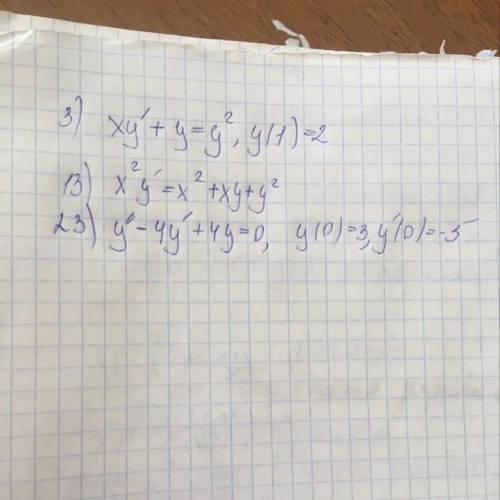 3) xy′ + y = y², y(1) = 2
13) x²y′ = x² + xy + y²
23) y″ - 4y′ + 4y = 0, y(0) = 3, y′(0) = -5